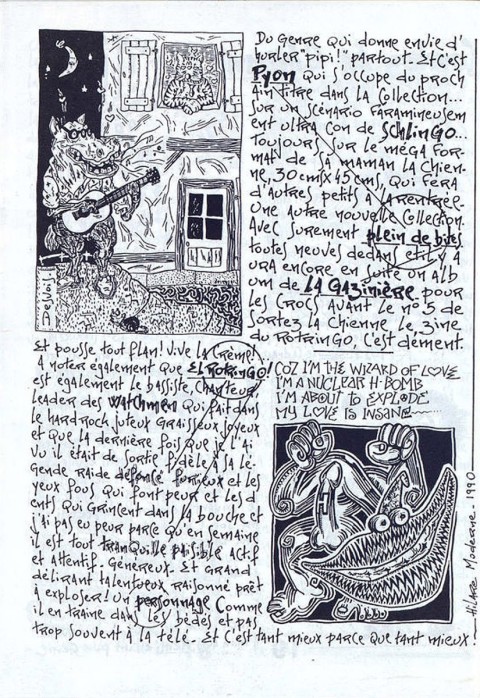 Du genre qui donne envie d'
hurler "pipi!" partout. Et c'est
Pyon qui s'occupe du proch
ain titre dans la collection...
sur un scénario faramineusem
ent ultra con de Schlingo...
Toujours sur le méga for-
mat de sa maman la Chien-
ne, 30cm x 45cms, qui fera
d'autres petits à la rentrée.
Une autre nouvelle collection
Avec surement plein de bites
toutes neuves dedans et il y a
ura encore en suite un alb
um de La Gazinière pour
les Crocs avant le n° 5 de
Sortez la Chienne, le 3ine
du RotringO, c'est dément.
Desvois
Et pousse tout plan! Vive la crème!
A noter également que El RotringO!
est également le bassiste, chanteur
leader des Watchmen qui fait dans
le hardrock juteux graisseux joyeux
et que la dernière fois que je l'ai
vu il était de sortie fidèle à sa lé-
gende raide défoncé furieux et les
yeux fous qui font peur et les d
ents qui grincent dans la bouche et
j'ai pas eu peur parce qu'en semaine
il est tout tranquille paisible actif
et attentif. Généreux. Et grand
délirant talentueux raisonné prêt
à exploser! Un personnage comme
il en traine dans les bédés et pas
trop souvent à la télé. Et c'est tant mieux parce que tant mieux!
Coz I'm the wizard of love
I'm a nuclear H-bomb
I'm about to explode
My love is insane
Hilare Moderne - 1990